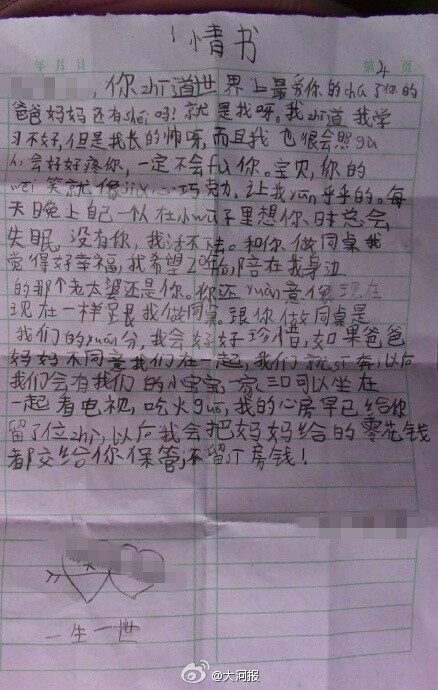 情书
年 月 日 第4页
，你zhī道世界上最爱你的chú了你的
爸爸妈妈还有shéi吗！就是我呀。我zhī道我学
习不好，但是我长的帅呀，而且我也很会照gù
人，会好好疼你，一定不会fù你。宝贝，你的
wēi笑就像巧克力，让我yūn乎乎的。每
天晚上自己一人在小wū子里想你，时总会
失眠，没有你，我活不去。和你做同桌我
觉得好幸福，我希望20年后，陪在我身边
的那个老太婆还是你。你还yuàn意像现在
现在一样跟我做同桌。跟你做同桌是
我们的yuán分，我会好好珍惜，如果爸爸
妈妈不同意我们在一起，我们就私奔，以后
我们会有我们的小宝宝，一家三口可以坐在
一起看电视，吃火guō，我的心房早已给你
留了位zhì，以后我会把妈妈给的零花钱
都交给你保管，不留私房钱！
一生一世
@大河报